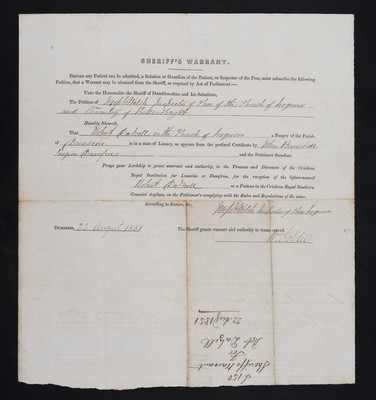 SHERIFF'S WARRANT.
BEFORE any Patient can be admitted, a Relation or Guardian of the Patient, or Inspector of the Poor, must subscribe the following
Petition, that a Warrant may be obtained from the Sheriff, as required by Act of Parliament:—
UNTO the Honorable the Sheriff of Dumfries-shire and his Substitutes,
The Petition of Inspector of Poor of the Parish of
and
Humbly Sheweth,
That Robert Dalzell in the Parish of a Pauper of the Parish
of is in a state of Lunacy, as appears from the prefixed Certificate by John
Surgeon Dumfries and the Petitioner therefore
Prays your Lordship to grant warrant and authority, to the Trustees and Directors of the Crichton
Royal Institution for Lunatics at Dumfries, for the reception of the before-named
Robert Dalzell as a Patient in the Crichton Royal Southern
Counties' Asylum, on the Petitioner's complying with the Rules and Regulations of the same.
According to Justice, &c.
Inspector of Poor
DUMFRIES, 22 August 1851 The Sheriff grants warrant and authority in terms craved.
Sheriff's Warrant
For
Rob Dalzell
22 Aug 1851